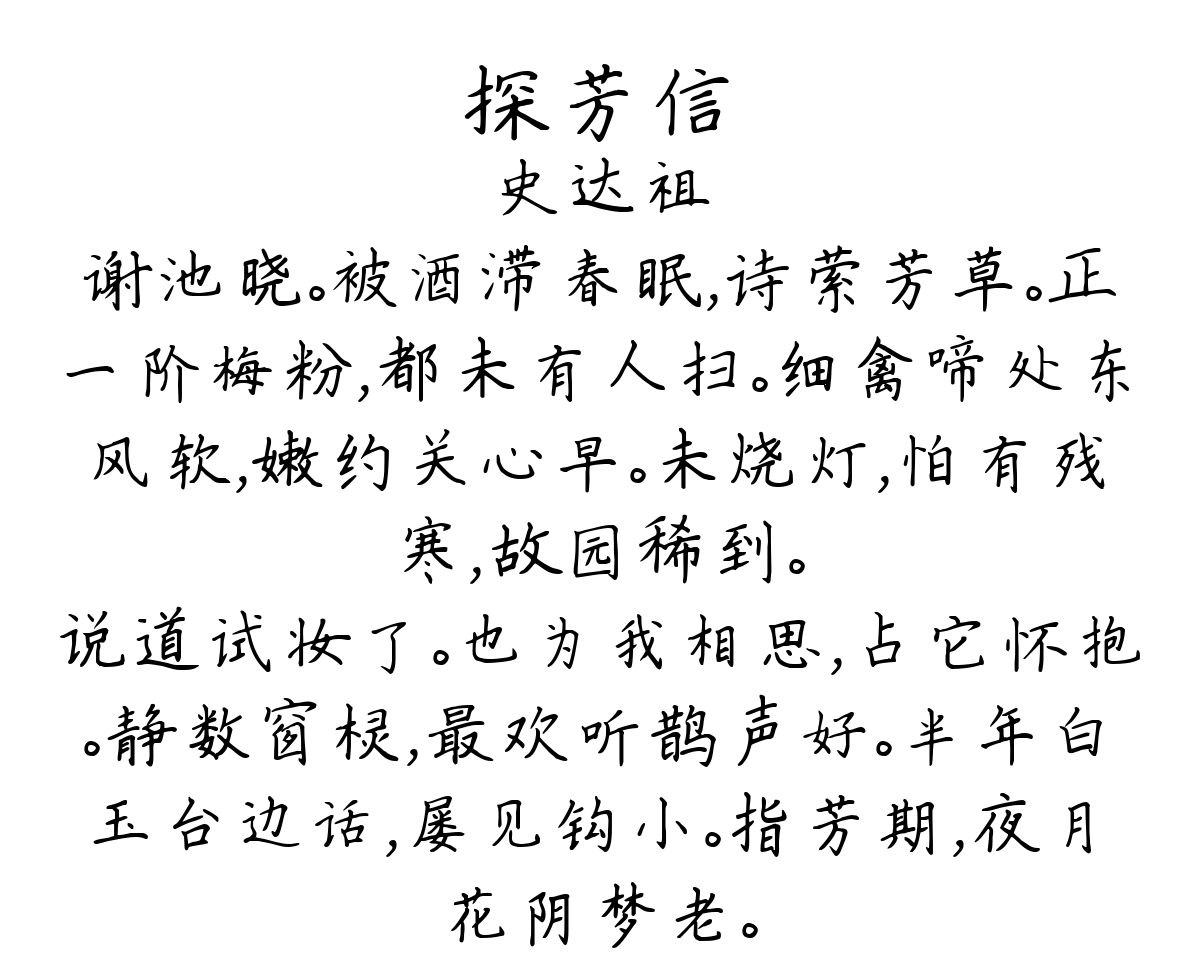 探芳信
史达祖
谢池晓。被酒滞春眠,诗萦芳草。正
一阶梅粉,都未有人扫。细禽啼处东
风软,嫩约关心早。未烧灯,怕有残
寒,故园稀到。
说道试妆了。也为我相思,占它怀抱
。静数窗棂,最欢听鹊声好。半年白
玉台边话,屡见钩小。指芳期,夜月
花阴梦老。